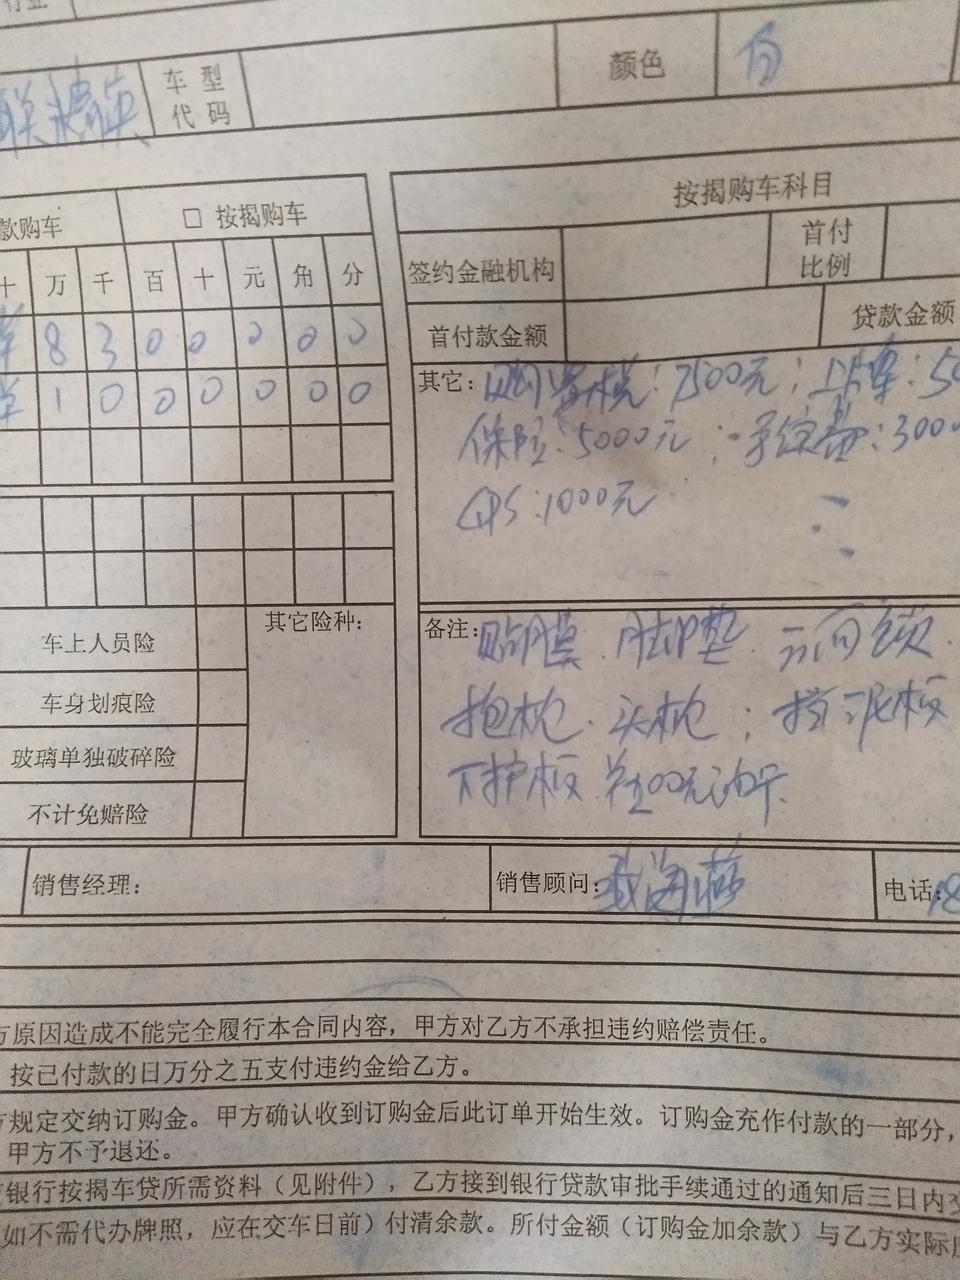 车型代码 颜色 白
款购车 □ 按揭购车
十 万 千 百 十 元 角 分
8 3 0 0 0 0 0
1 0 0 0 0 0 0
按揭购车科目
签约金融机构 首付比例
首付款金额 贷款金额
其它: 购置税:7500元;上牌:50
保险:5000元;手续费:3000
1000元
车上人员险
车身划痕险
玻璃单独破碎险
不计免赔险
其它险种:
备注: 贴膜.脚垫.
抱枕.头枕;挡泥板
下护板.
销售经理: 销售顾问: 电话:18
方原因造成不能完全履行本合同内容,甲方对乙方不承担违约赔偿责任。
按已付款的日万分之五支付违约金给乙方。
方规定交纳订购金。甲方确认收到订购金后此订单开始生效。订购金充作付款的一部分,
甲方不予退还。
银行按揭车贷所需资料(见附件),乙方接到银行贷款审批手续通过的通知后三日内交
如不需代办牌照,应在交车日前)付清余款。所付金额(订购金加余款)与乙方实际